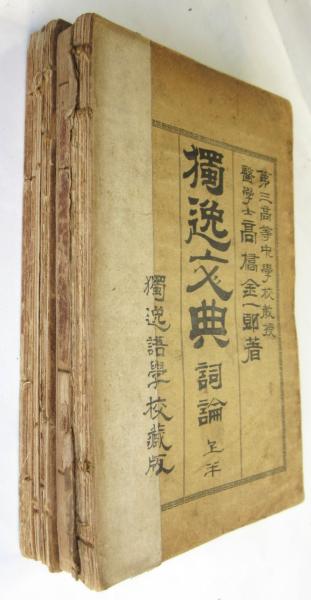 第三高等中學校教授
醫学士高橋金一郎著
獨逸文典 詞論 上半
獨逸語學校藏版